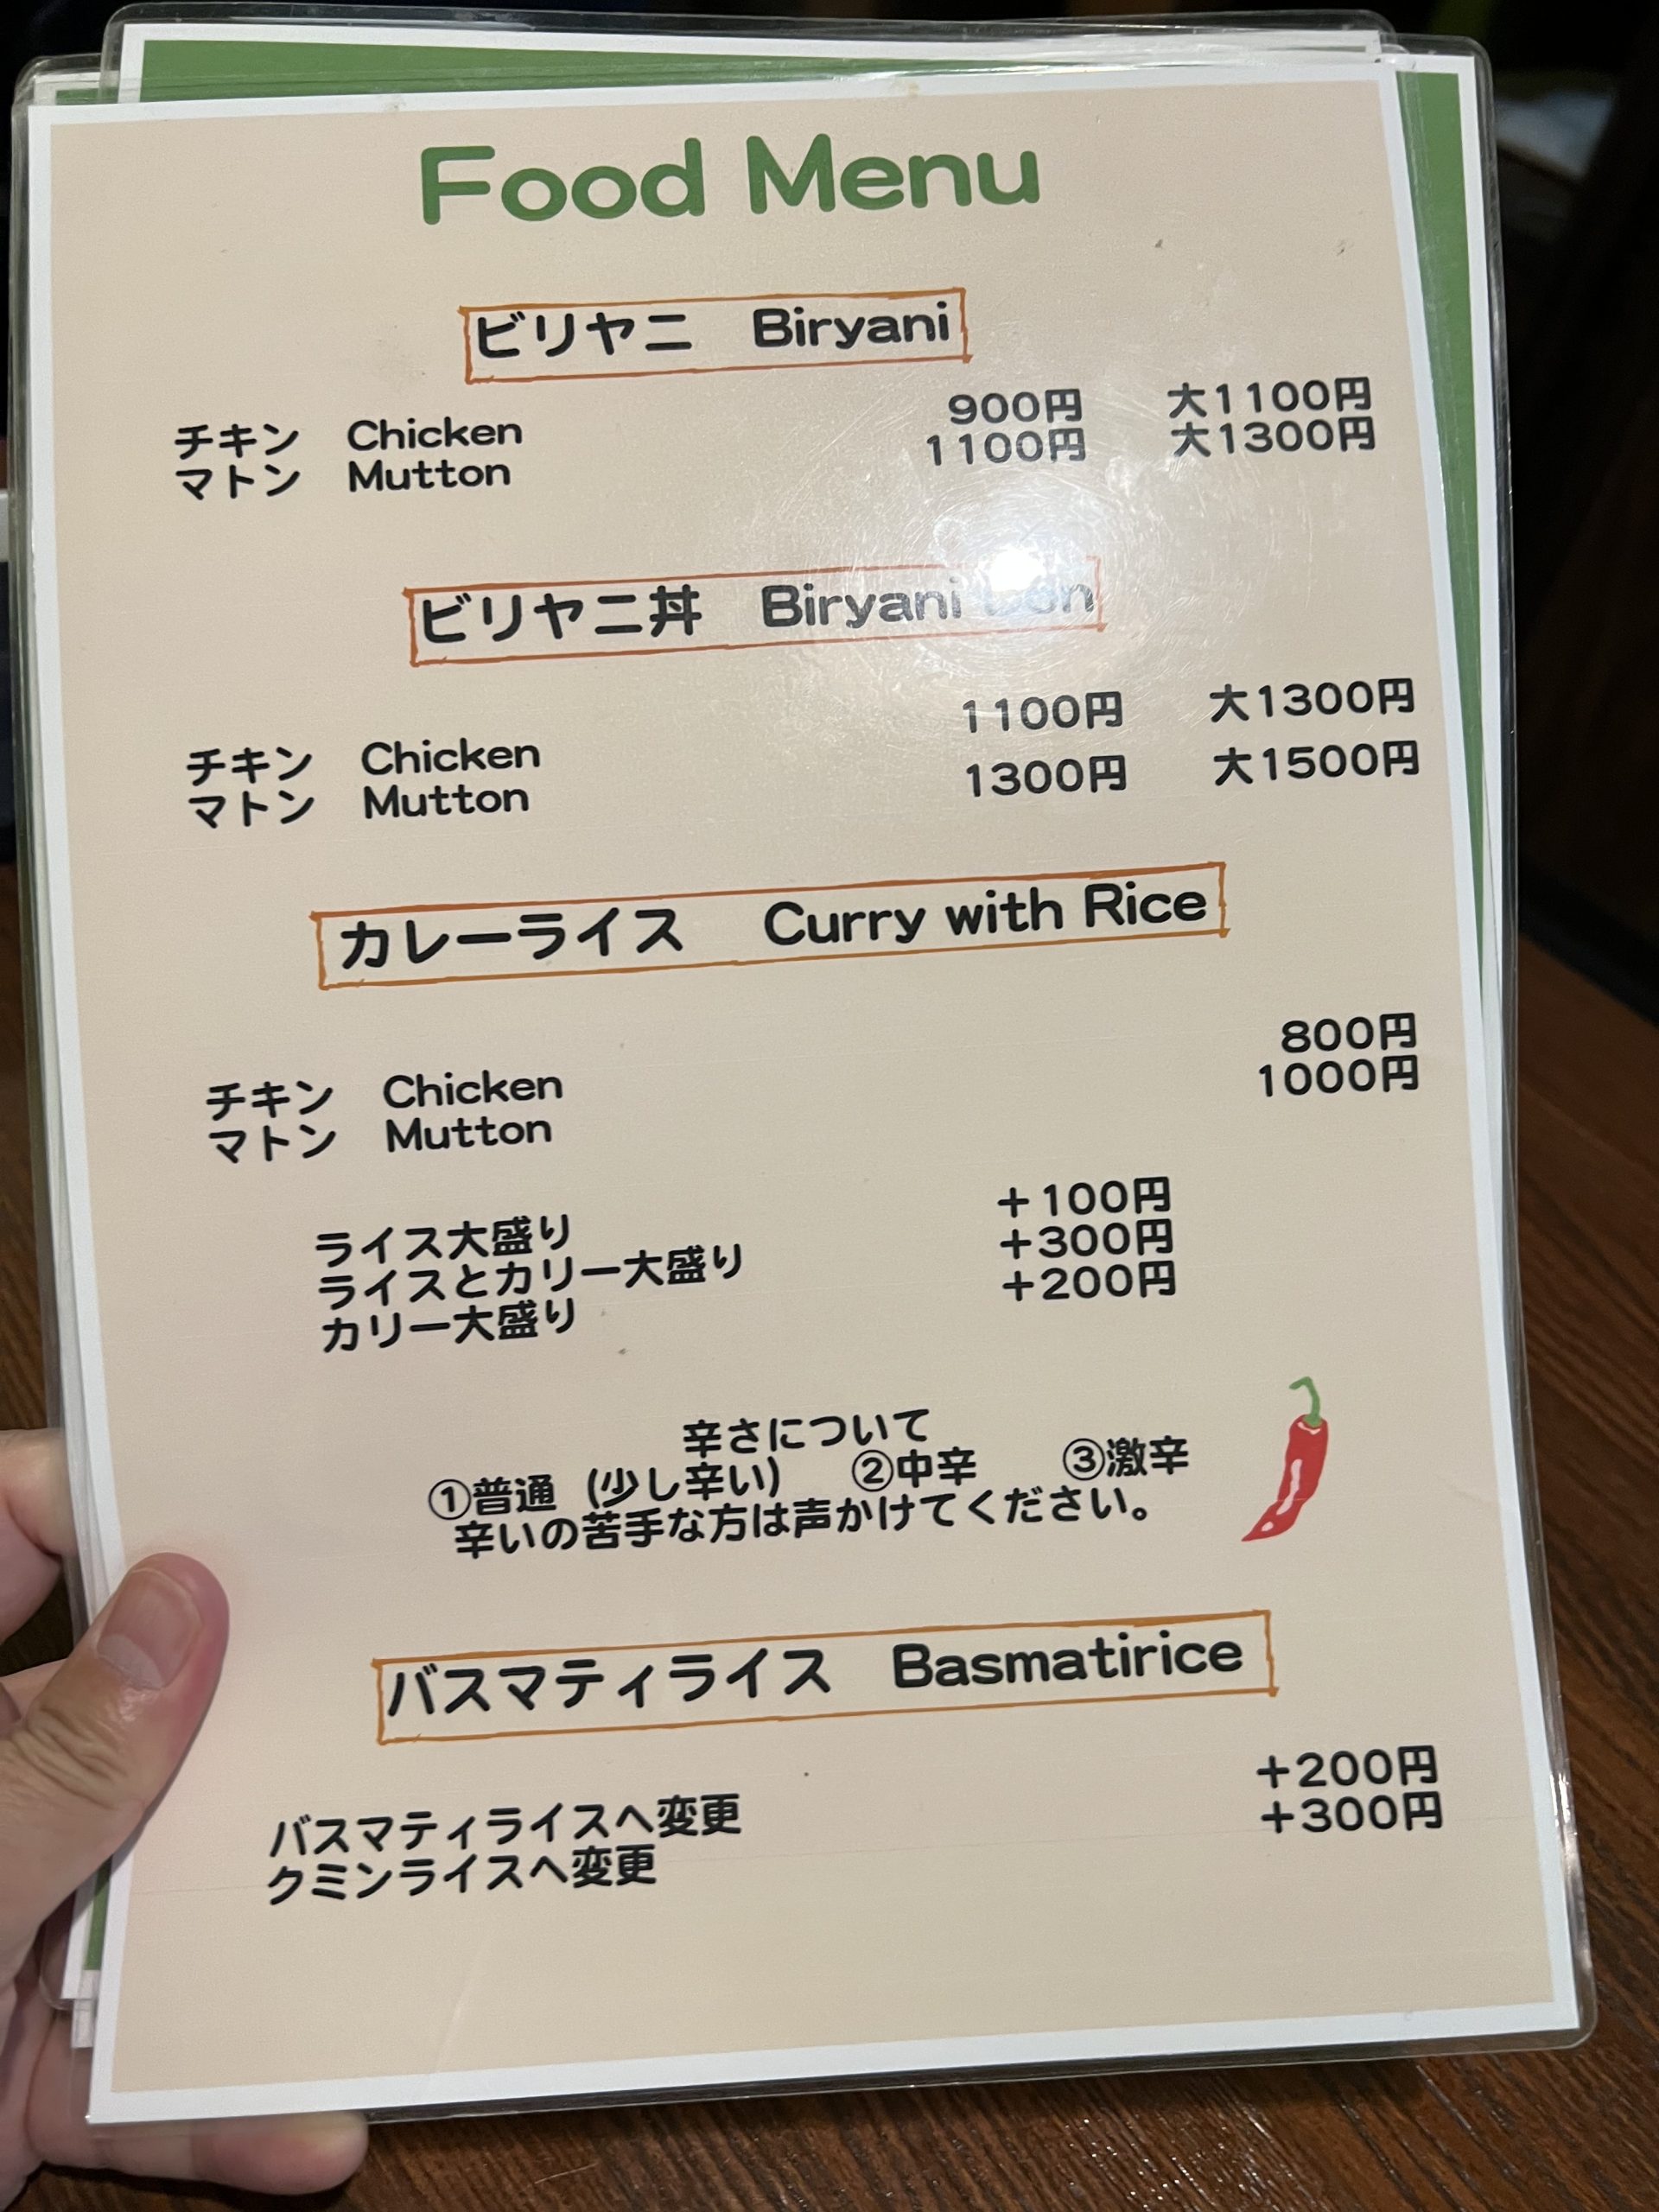 Food Menu
ビリヤニ Biryani
チキン Chicken 900円 大1100円
マトン Mutton 1100円 大1300円
ビリヤニ丼 Biryani Don
チキン Chicken 1100円 大1300円
マトン Mutton 1300円 大1500円
カレーライス Curry with Rice
チキン Chicken 800円
マトン Mutton 1000円
ライス大盛り +100円
ライスとカリー大盛り +300円
カリー大盛り +200円
辛さについて
①普通 (少し辛い) ②中辛 ③激辛
辛いの苦手な方は声かけてください。
バスマティライス Basmatirice
バスマティライスへ変更 +200円
クミンライスへ変更 +300円